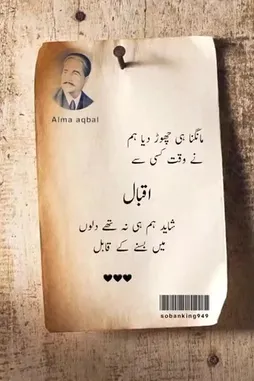 Alma aqbal
مانگنا ہی چھوڑ دیا ہم
نے وقت کسی سے
اقبال
شاید ہم ہی نہ تھے دلوں
میں بسنے کے قابل
sobanking949